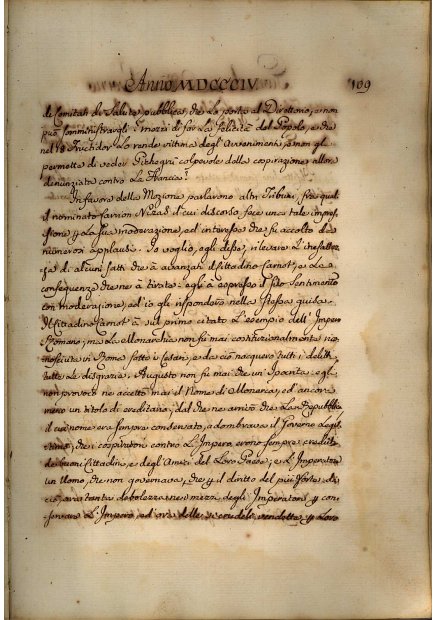 Anno MDCCCIV
109
di Comitati di Salute pubblica, che la porta al Direttorio, e non
può somministrargli i mezzi di far la felicità del Popolo, e che
nel 18 Fructidor la rende vittima degli Avvenimenti, e non gli
permette di veder Pichegrù colpevole della cospirazione allor
denunziata contro la Francia.
In favore della Mozione parlarono altri Tribuni, fra quali
il nominato Carrion Nisas il cui discorso fece una tale impres
sione per la sua moderazione, ed interesse che fu accolto da
numerosi applausi. Io voglio, egli disse, rilevare l'inesattez
za di alcuni fatti che à avanzati il Cittadino Carnot, e le
conseguenze che ne à tirate: egli à espresso il suo Sentimento
con moderazione, ed io gli rispondo nella stessa guisa.
Il Cittadino Carnot à sul primo citato l'esempio dell'Impero
Romano; ma la Monarchia non fu mai costituzionalmente rico
nosciuta in Roma sotto i Cesari, e da ciò nacquero tutti i delitti,
tutte le disgrazie. Augusto non fu mai che un
non accettò mai il Nome di Monarca, ed ancor
meno un titolo di ereditario; dal che ne venne che la Repubblica
il cui nome era sempre conservato, adombrava il Governo Legit
timo, che i cospiratori contro l'Impero erono sempre creduti
de buoni Cittadini, e degli Amici del Loro Paese; e l'Imperatore
un Uomo, che non governava, che per il diritto del più forte. da
ciò, tanta debolezza ne mezzi degli Imperatori per con
servare l'Impero, ed ora delle crudeli vendette per Loro